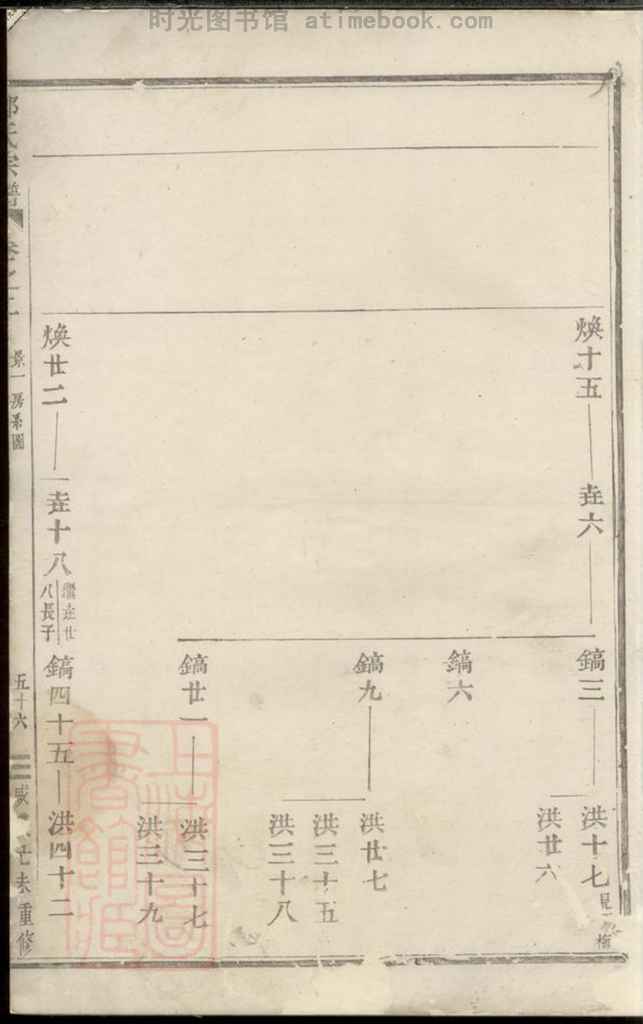 时光图书馆 atimebook.com
煥十五
垚六
鎬三
洪十七
洪廿六
鎬六
鎬九
洪廿七
洪三十五
洪三十八
鎬廿一
洪三十七
洪三十九
煥廿二
垚十八
繼垚廿
八長子
鎬四十五
洪四十二
氏宗譜
景一房系圖
五十六
未重修